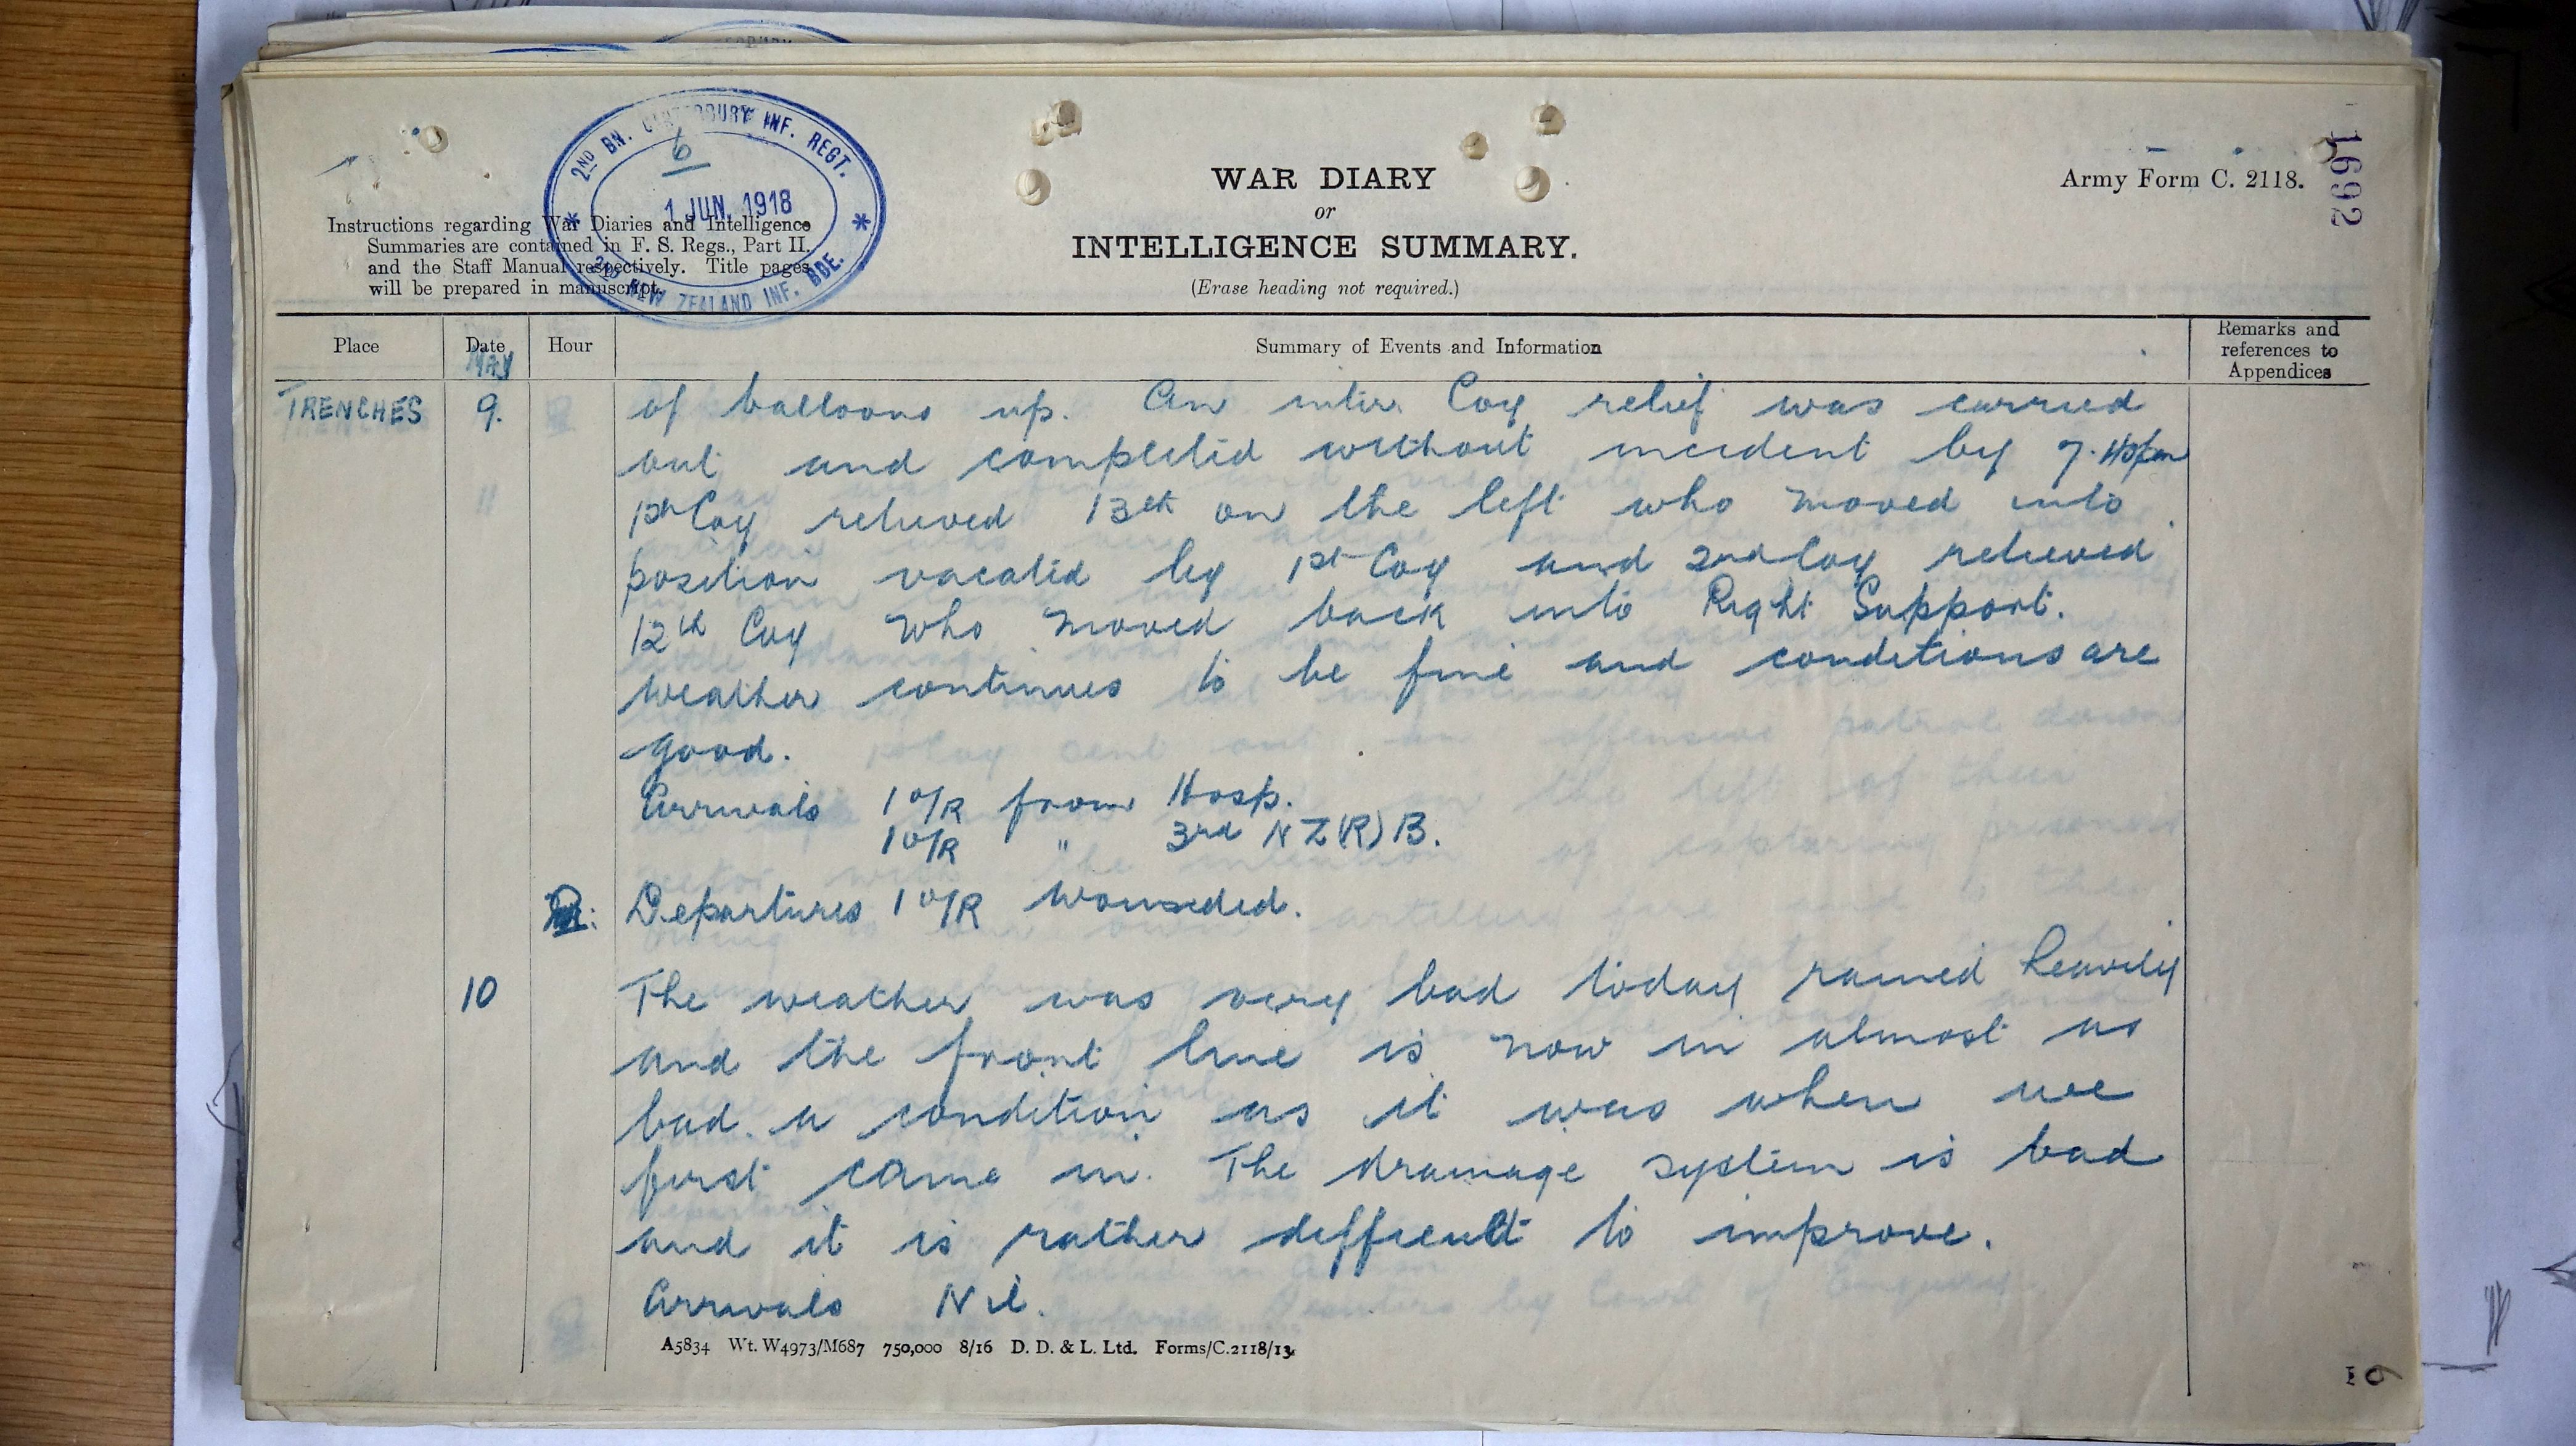 2ND BN. CANTERBURY INF. REGT.
6
1 JUN. 1918
2ND NEW ZEALAND INF. BDE.
Instructions regarding War Diaries and Intelligence
Summaries are contained in F. S. Regs., Part II.
and the Staff Manual respectively. Title pages
will be prepared in manuscript.
WAR DIARY
or
INTELLIGENCE SUMMARY.
(Erase heading not required.)
Army Form C. 2118.
1692
Place Date Hour Summary of Events and Information Remarks and references to Appendices
MAY
TRENCHES 9. of balloons up. An inter Coy relief was carried
out and completed without incident by
1st Coy relieved 13th on the left who moved into
position vacated by 1st Coy and 2nd Coy relieved
12th Coy who moved back into Right Support.
Weather continues to be fine and conditions are
good.
Arrivals 1 O/R from Hosp.
1 O/R " 3rd NZ(R)B.
Departures 1 O/R wounded.
10 The weather was very bad today rained heavily
and the front line is now in almost as
bad a condition as it was when we
first came in. The drainage system is bad
and it is rather difficult to improve.
Arrivals Nil.
A5834 Wt. W4973/M687 750,000 8/16 D. D. & L. Ltd. Forms/C.2118/13.